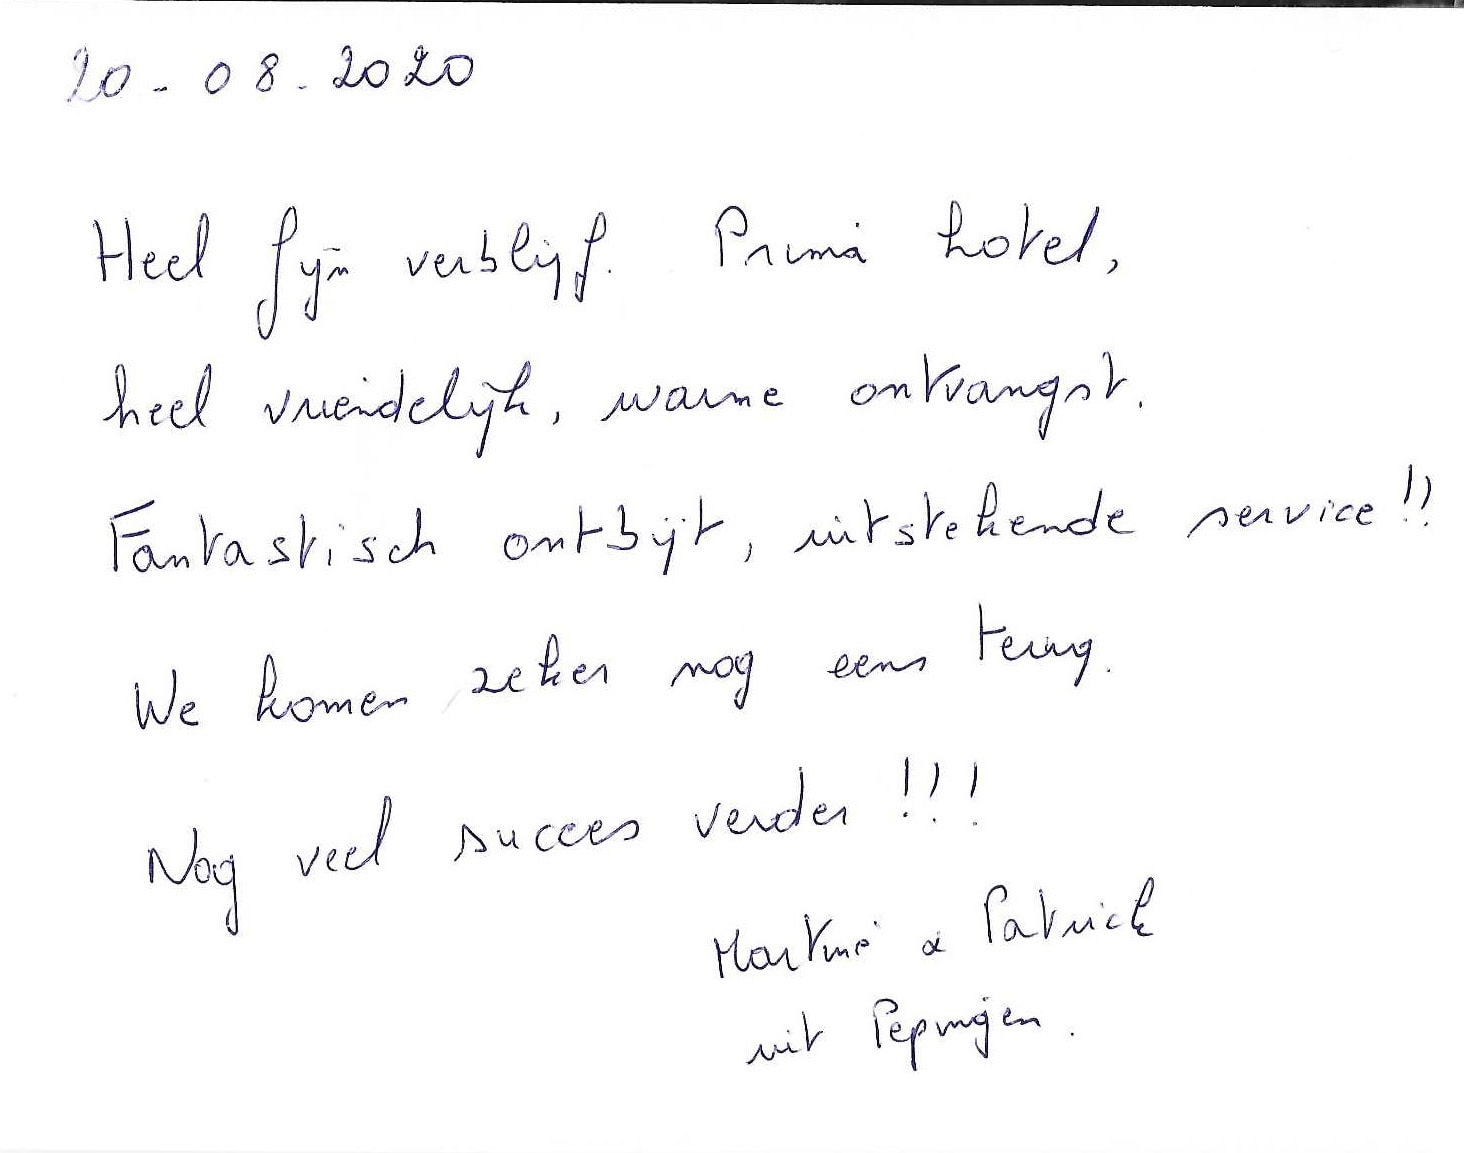 20-08-2020
Heel fijn verblijf. Prima hotel,
heel vriendelijk, warme ontvangst.
Fantastisch ontbijt, uitstekende service!!
We komen zeker nog eens terug.
Nog veel succes verder!!!
Martine & Patrick
uit Pepingen.